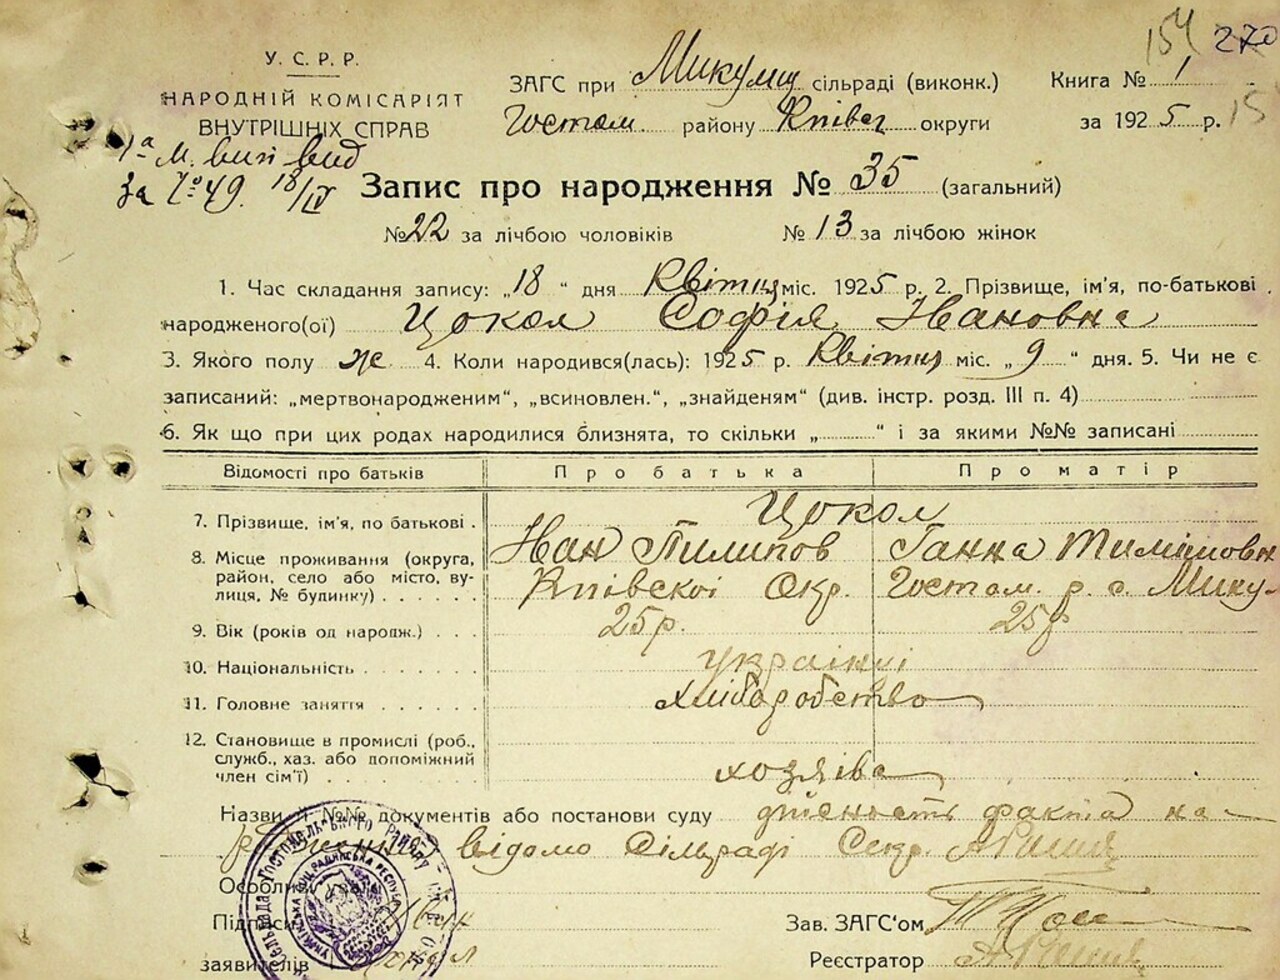 154 270
У. С. Р. Р.
НАРОДНІЙ КОМІСАРІЯТ
ВНУТРІШНІХ СПРАВ
ЗАГС при Микулиц сільраді (виконк.) Книга № 1
Гостом. району Київск округи за 1925 р. 15
1а м. вип вид
За № 49. 18/IV
Запис про народження № 35 (загальний)
№ 22 за лічбою чоловіків № 13 за лічбою жінок
1. Час складання запису: „18“ дня Квітня міс. 1925 р. 2. Прізвище, ім'я, по-батькові
народженого(ої) Цокол Софія Івановна
3. Якого полу ж 4. Коли народився(лась): 1925 р. Квітня міс. „9“ дня. 5. Чи не є
записаний: „мертвонародженим“, „всиновлен.“, „знайденям“ (див. інстр. розд. III п. 4)
6. Як що при цих родах народилися близнята, то скільки „ “ і за якими №№ записані
Відомості про батьків Про батька Про матір
7. Прізвище, ім'я, по батькові . Цокол
Іван Пилипов Ганна Тимішовн
8. Місце проживання (округа,
район, село або місто, ву-
лиця, № будинку) . . . . . . Київскоі Окр. Гостом. р. с. Мику-
9. Вік (років од народж.) . . . 25 р. 25 р
10. Національність . . . . . . . українці
11. Головне заняття . . . . . . хліборобство
12. Становище в промислі (роб.,
служб., хаз. або допоміжний
член сім'ї) . . . . . . . . . хозяіва
Назви і №№ документів або постанови суду дійсность факта на-
відомо Сільраді Секр.
Особливі уваги
Підписи Іван Зав. ЗАГС'ом
заявителів Цокол Реєстратор